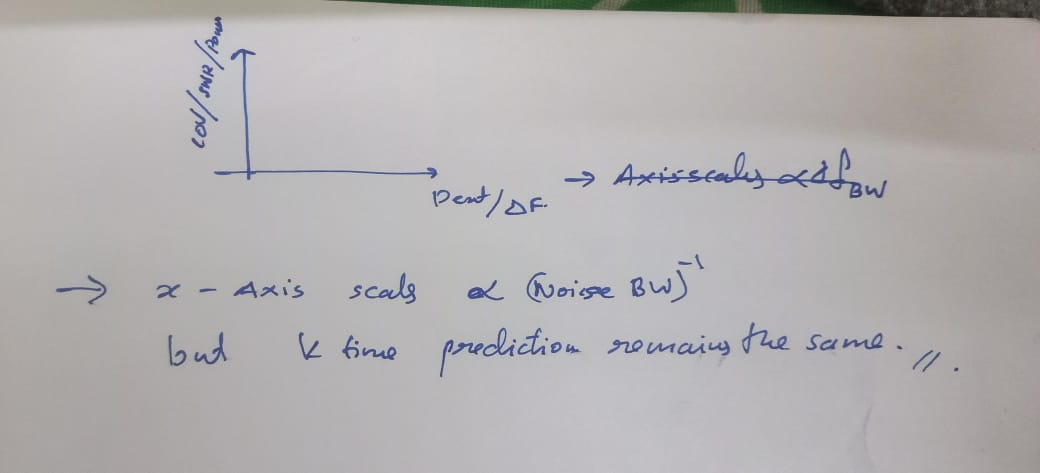 COV/SNR/Power
→ Axis scales ∝ Δf_BW
/ΔF
→ x - Axis scals ∝ (Noise BW)⁻¹
but k time prediction remains the same. //.